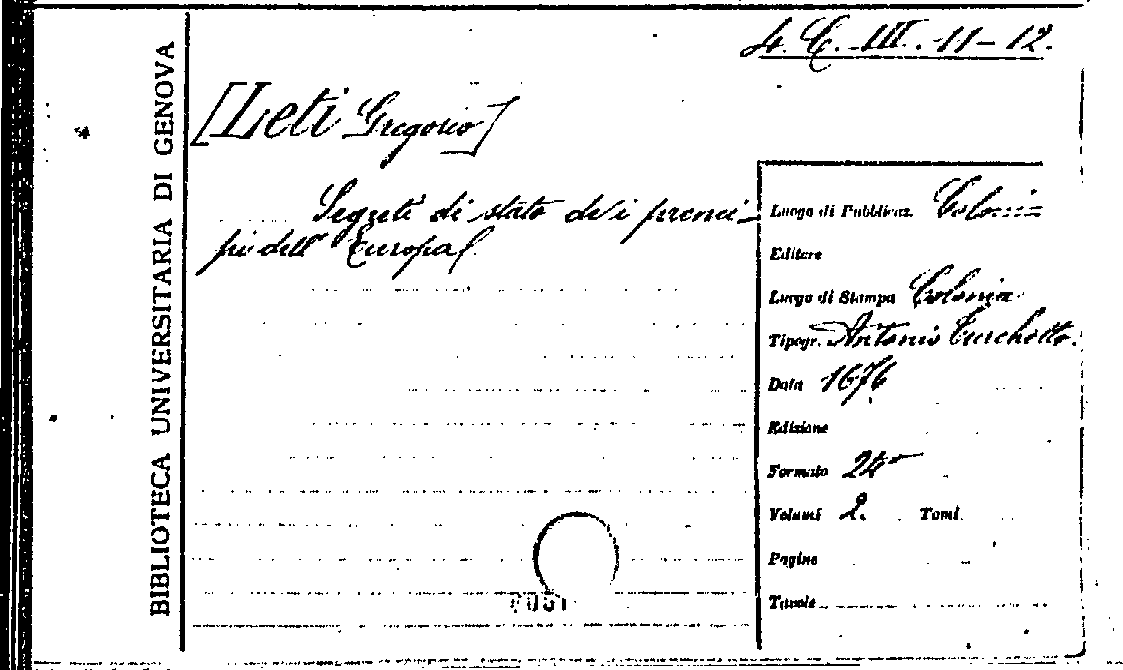 4. C. III. 11-12.
BIBLIOTECA UNIVERSITARIA DI GENOVA
[Leti Gregorio]
Segreti di stato dei prenci-
pi dell' Europa
Luogo di Pubblicaz. Colonia
Editore
Luogo di Stampa Colonia
Tipogr. Antonio Turchetto.
Data 1676
Edizione
Formato 24°
Volumi 2. Tomi
Pagine
Tavole